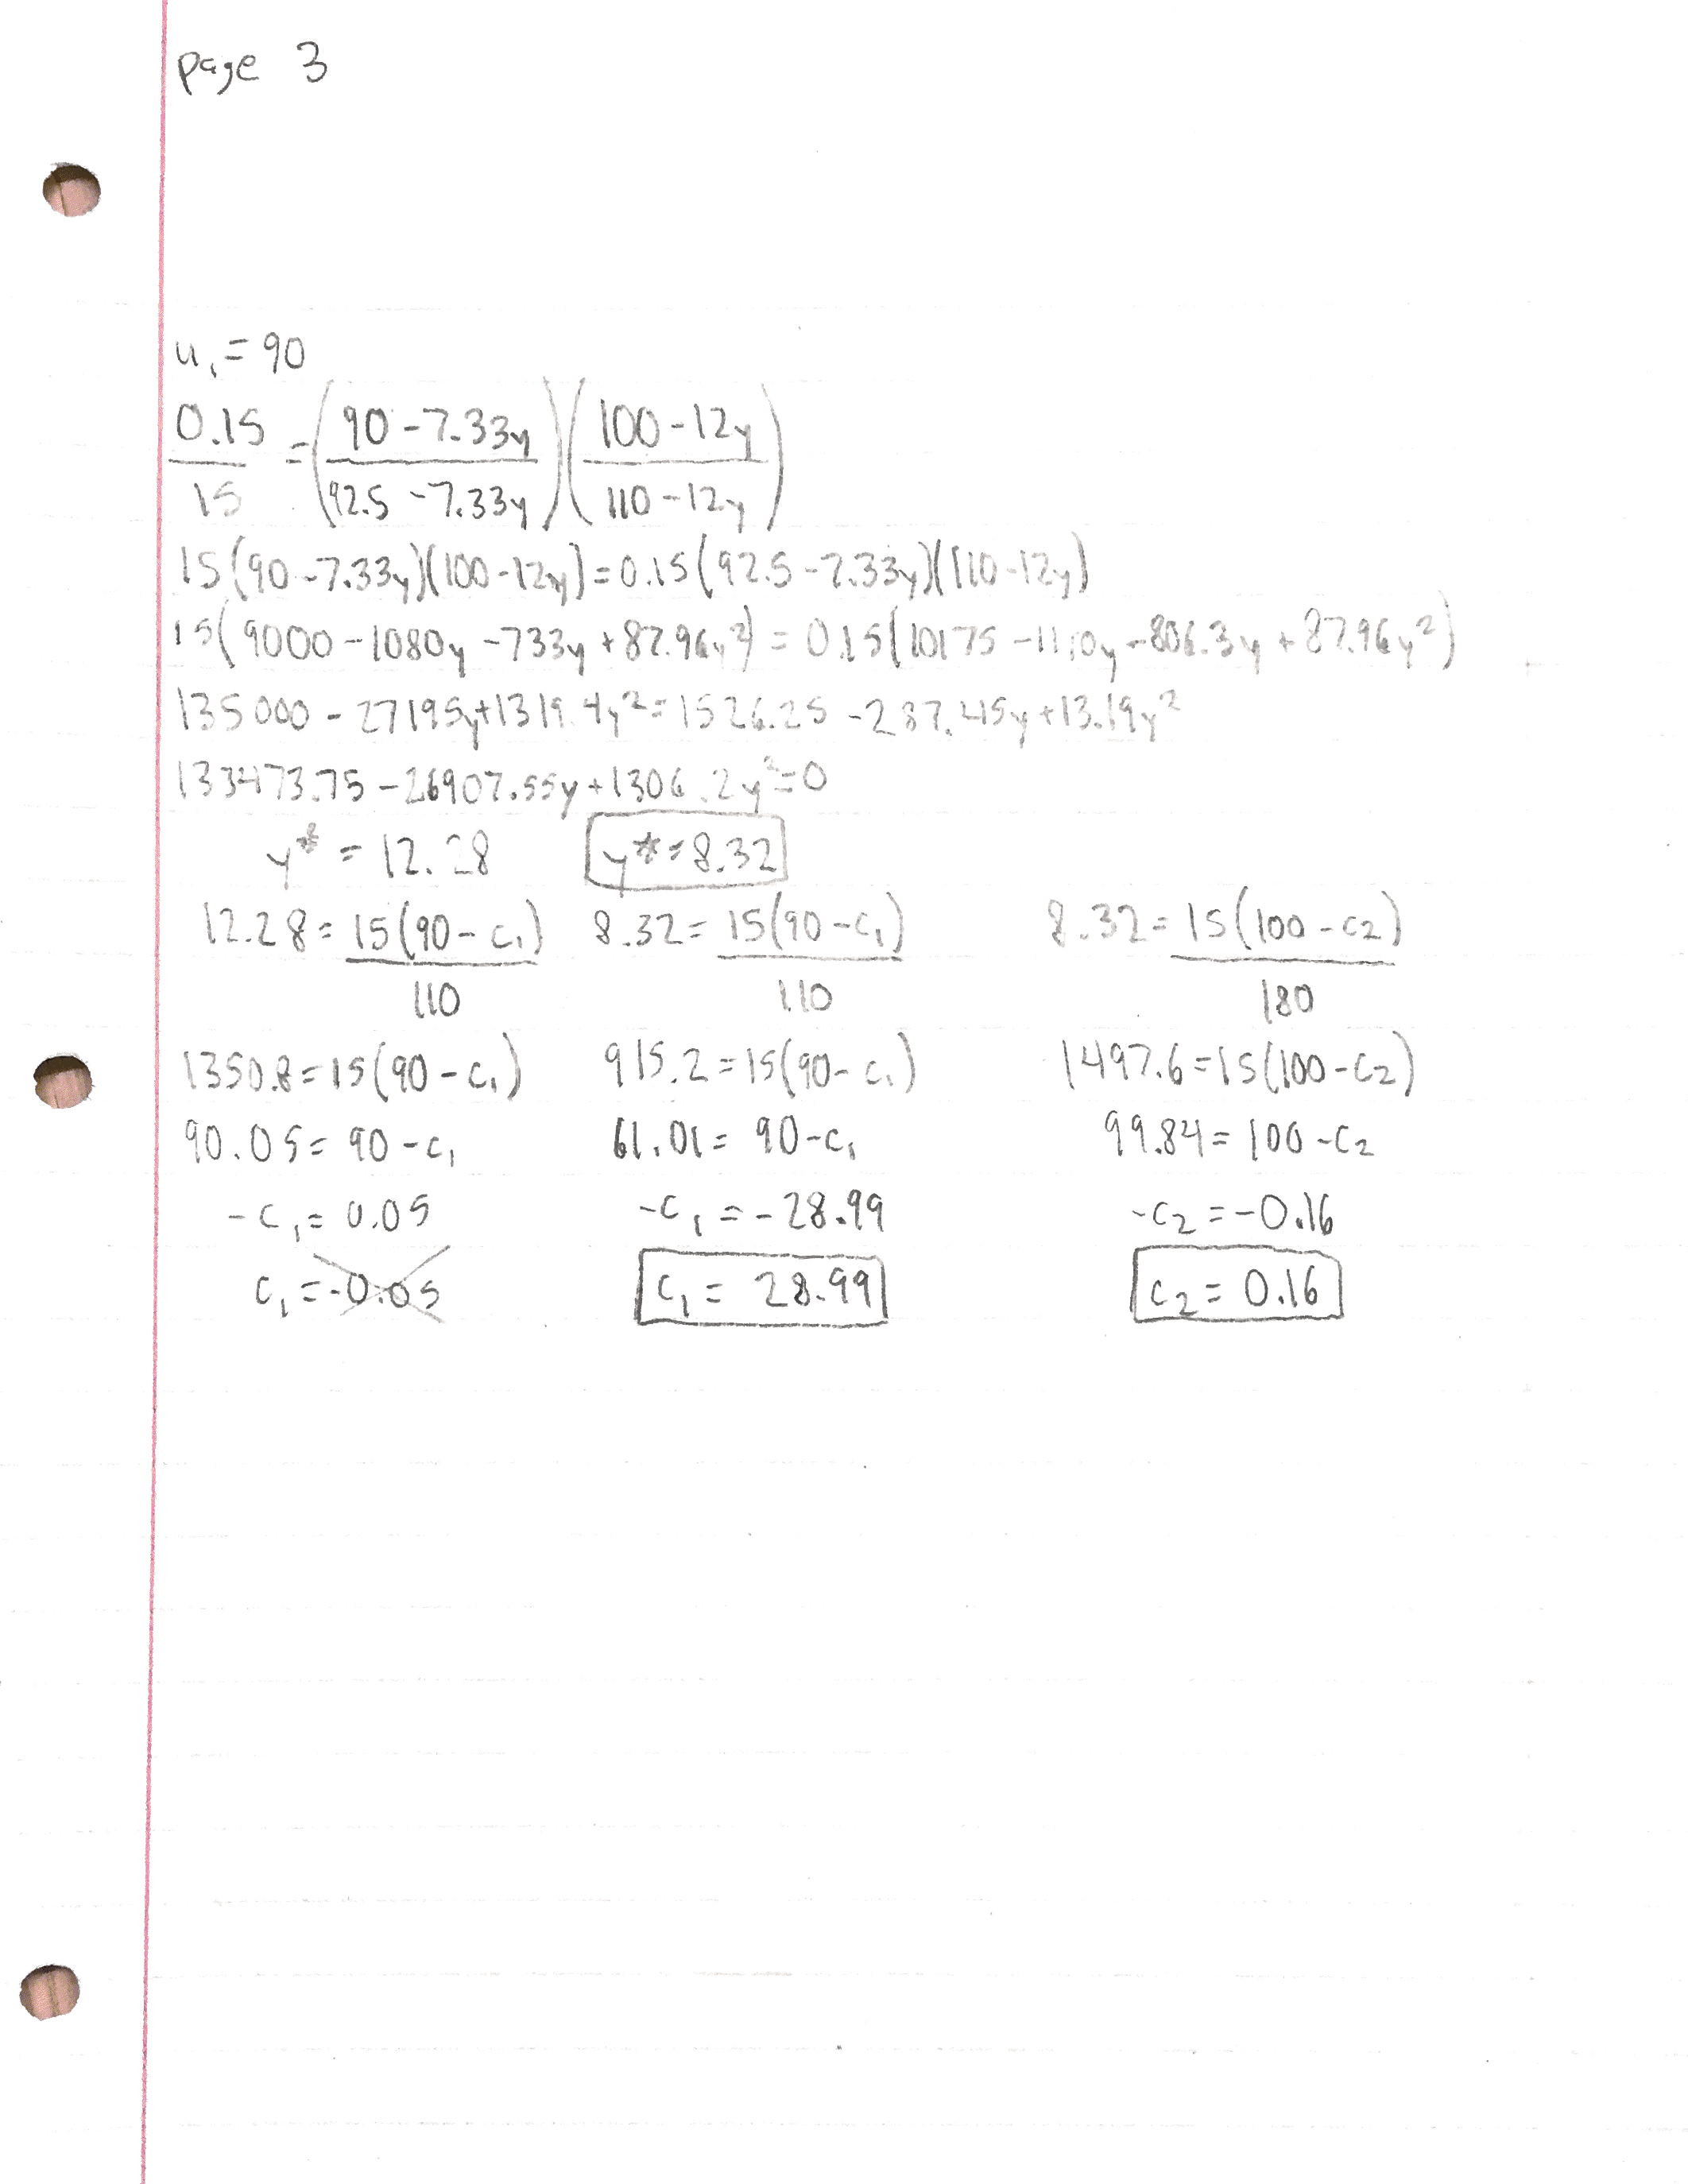 page 3
u₁ = 90
0.15/15 = (90 - 7.33y / 92.5 - 7.33y)(100 - 12y / 110 - 12y)
15(90 - 7.33y)(100 - 12y) = 0.15(92.5 - 7.33y)(110 - 12y)
15(9000 - 1080y - 733y + 87.96y²) = 0.15(10175 - 1110y - 806.3y + 87.96y²)
135000 - 27195y + 1319.4y² = 1526.25 - 287.45y + 13.19y²
133473.75 - 26907.55y + 1306.2y² = 0
y* = 12.28 y* = 8.32
12.28 = 15(90 - c₁)/110 8.32 = 15(90 - c₁)/110 8.32 = 15(100 - c₂)/180
1350.8 = 15(90 - c₁) 915.2 = 15(90 - c₁) 1497.6 = 15(100 - c₂)
90.05 = 90 - c₁ 61.01 = 90 - c₁ 99.84 = 100 - c₂
-c₁ = 0.05 -c₁ = -28.99 -c₂ = -0.16
c₁ = -0.05 c₁ = 28.99 c₂ = 0.16